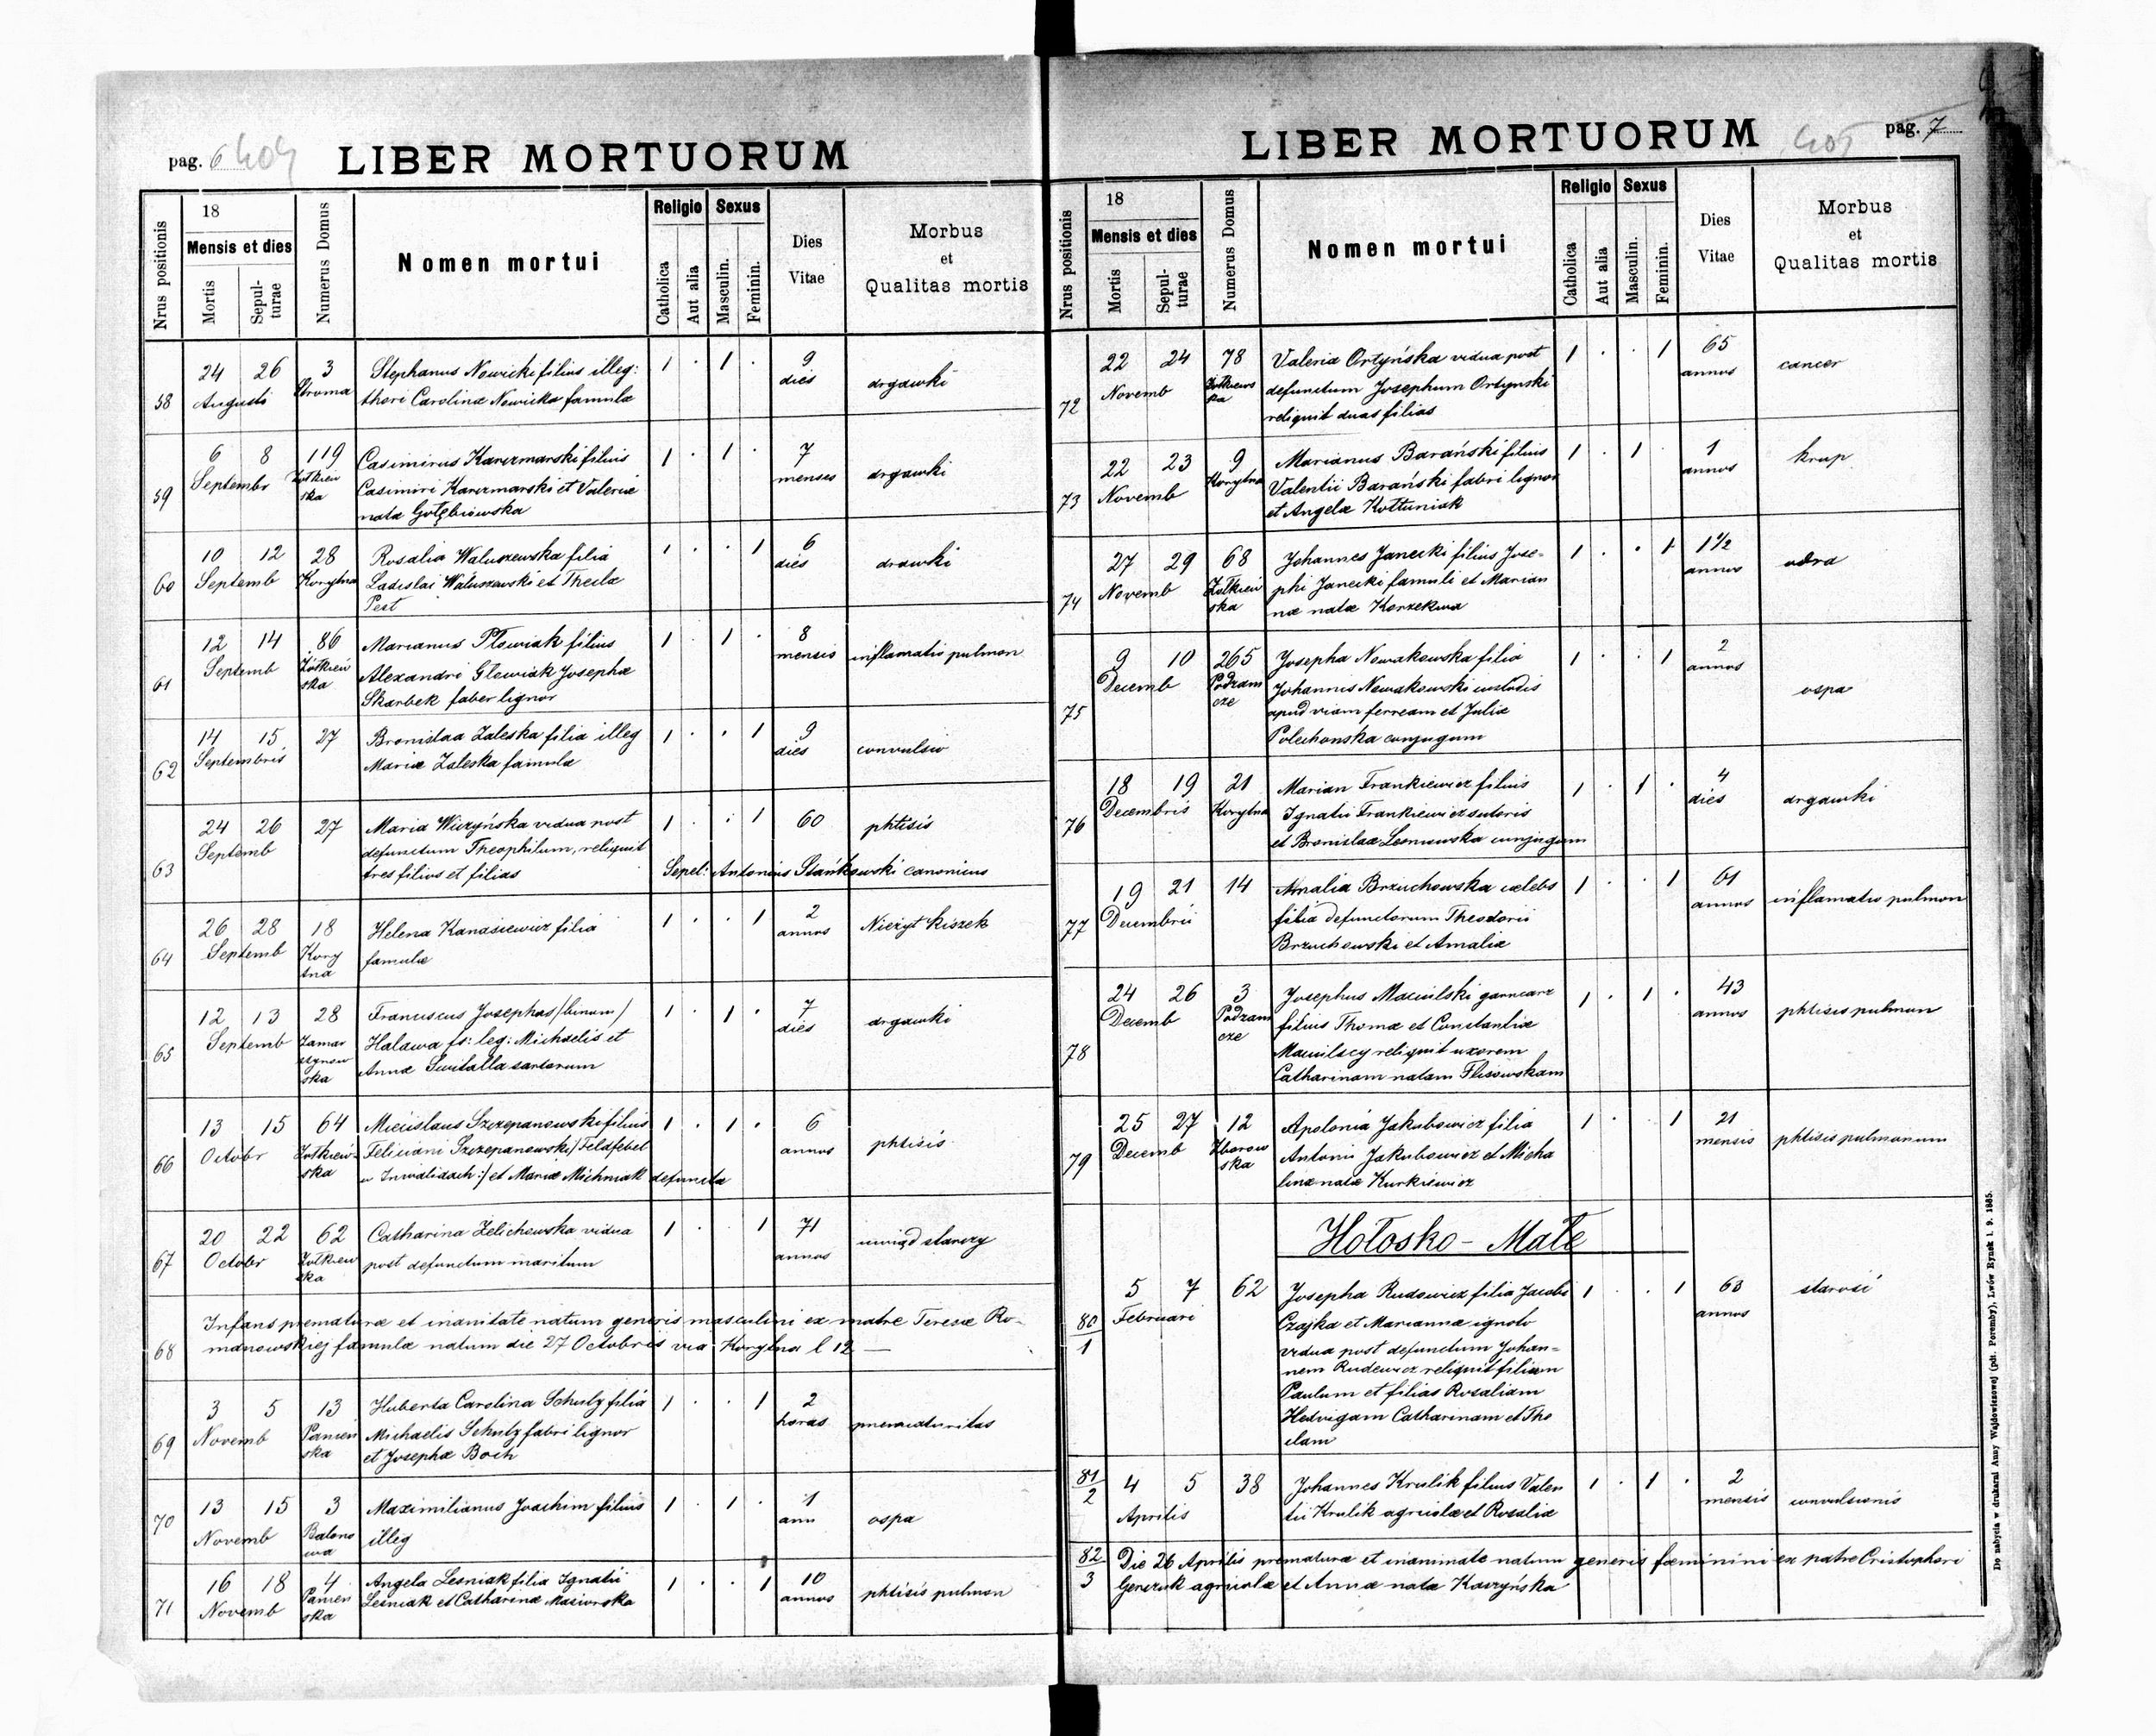 pag. 6 404
LIBER MORTUORUM
Nrus positionis
18
Mensis et dies
Mortis
Sepulturae
Numerus Domus
Nomen mortui
Religio
Catholica
Aut alia
Sexus
Masculin.
Feminin.
Dies
Vitae
Morbus
et
Qualitas mortis
58 24 26 3 Stephanus Nowicki filius illeg: 1 . 1 . 9
Augusti Stroma thori Carolinæ Nowicka famulæ dies drgawki
59 6 8 119 Casimirus Karczmarski filius 1 . 1 . 7
Septembr Żołkiew Casimiri Karczmarski et Valeriæ menses drgawki
ska nata Gołębiowska
60 10 12 28 Rosalia Waluszewska filia 1 . . 1 6
Septemb Korytna Ladislai Waluszewski et Theclæ dies drawki
Pest
61 12 14 86 Marianus Plewiak filius 1 . 1 . 8
Septemb Żółkiew Alexandri Glewiak Josephæ mensis inflamatio pulmon
ska Skarbek faber lignor
62 14 15 27 Bronislaa Zaleska filia illeg 1 . . 1 9
Septembris Mariæ Zaleska famulæ dies convulsio
63 24 26 27 Maria Wiczyńska vidua post 1 . . 1 60 phtisis
Septemb defunctum Theophilum, reliquit
tres filios et filias Sepel: Antonius Stańkowski canonicus
64 26 28 18 Helena Kanasiewicz filia 1 . . 1 2
Septemb Kory famulæ annos Nieżyt kiszek
tna
65 12 13 28 Franciscus Josephas /binom/ 1 . 1 . 7
Septemb Zamar Halawa fs: leg: Michaelis et dies drgawki
stynow Annæ Switalla sartorum
ska
66 13 15 64 Miecislaus Szczepanowski filius 1 . 1 . 6
Octobr Żołkiew Feliciani Szczepanowski /Feldfebel annos phtisis
ska w Inwalidach:/ et Mariæ Michniak defuncta
67 20 22 62 Catharina Zelichowska vidua 1 . . 1 71
October Żołkiew post defunctum maritum annos uwiąd starczy
ska
68 Infans prematuræ et inanitate natum generis masculini ex matre Teresæ Ro-
manowskiej famulæ natum die 27 Octobris via Korytna l 12 —
69 3 5 13 Huberta Carolina Schulz filia 1 . . 1 2
Novemb Panień Michaelis Schulz fabri lignor horas prematuritas
ska et Josephæ Boch
70 13 15 3 Maximilianus Joachim filius 1 . 1 . 1
Novemb Balono illeg ann ospa
wa
71 16 18 4 Angela Lesniak filia Ignatii 1 . . 1 10
Novemb Panień Lesniak et Catharinæ Masiorska annos phtisis pulmon
ska
LIBER MORTUORUM
405 pag. 7
Nrus positionis
18
Mensis et dies
Mortis
Sepulturae
Numerus Domus
Nomen mortui
Religio
Catholica
Aut alia
Sexus
Masculin.
Feminin.
Dies
Vitae
Morbus
et
Qualitas mortis
72 22 24 78 Valeria Ortyńska vidua post 1 . . 1 65
Novemb Żołkiews defunctum Josephum Ortynski annos cancer
ka reliquit duas filias
73 22 23 9 Marianus Barański filius 1 . 1 . 1
Novemb Korytna Valentii Barański fabri lignor annos krup
et Angelæ Kottuniak
74 27 29 68 Johannes Janecki filius Jose- 1 . . 1 1 1/2
Novemb Żołkiew phi Janecki famuli et Marian annos odra
ska næ natæ Korzekwa
75 9 10 265 Josepha Nowakowska filia 1 . . 1 2
Decemb Podzam Johannis Nowakowski custodis annos
cze apud viam ferream et Juliæ ospa
Polechonska conjugum
76 18 19 21 Marian Frankiewicz filius 1 . 1 . 4
Decembris Korytna Ignatii Frankiewicz sutoris dies drgawki
et Bronislaæ Lesniowska conjugum
77 19 21 14 Amalia Brzuchowska cælebs 1 . . 1 61
Decembris filia defunctorum Theodorii annos inflamatio pulmon
Brzuchowski et Amaliæ
78 24 26 3 Josephus Maciulski garncarz 1 . 1 . 43
Decemb Podzam filius Thomæ et Constantiæ annos phtisis pulmon
cze Maciulscy reliquit uxorem
Catharinam natam Flisowskam
79 25 27 12 Apolonia Jakubowicz filia 1 . . 1 21
Decemb Zborow Antonii Jakubowicz et Micha mensis phtisis pulmonum
ska linæ natæ Kurkiewicz
Hołosko - Małe
80/1 5 7 62 Josepha Rudowicz filia Jacobi 1 . . 1 63 starość
Februari Czajka et Mariannæ ignoto annos
vidua post defunctum Johan-
nem Rudewicz reliquit filium
Paulum et filias Rosaliam
Hedvigam Catharinam et The
clam
81/2 4 5 38 Johannes Krulik filius Valen 1 . 1 . 2
Aprilis tii Krulik agricolæ et Rosaliæ mensis convulsionis
82/3 Die 26 Aprilis prematuræ et inanimate natum generis fæminini ex patre Cristophori
Gerczuk agricolæ et Annæ nata Kaczyńska
Do nabycia w drukarni Anny Wajdowiczowej (pdt. Poremby), Lwów Rynek l. 9. 1885.